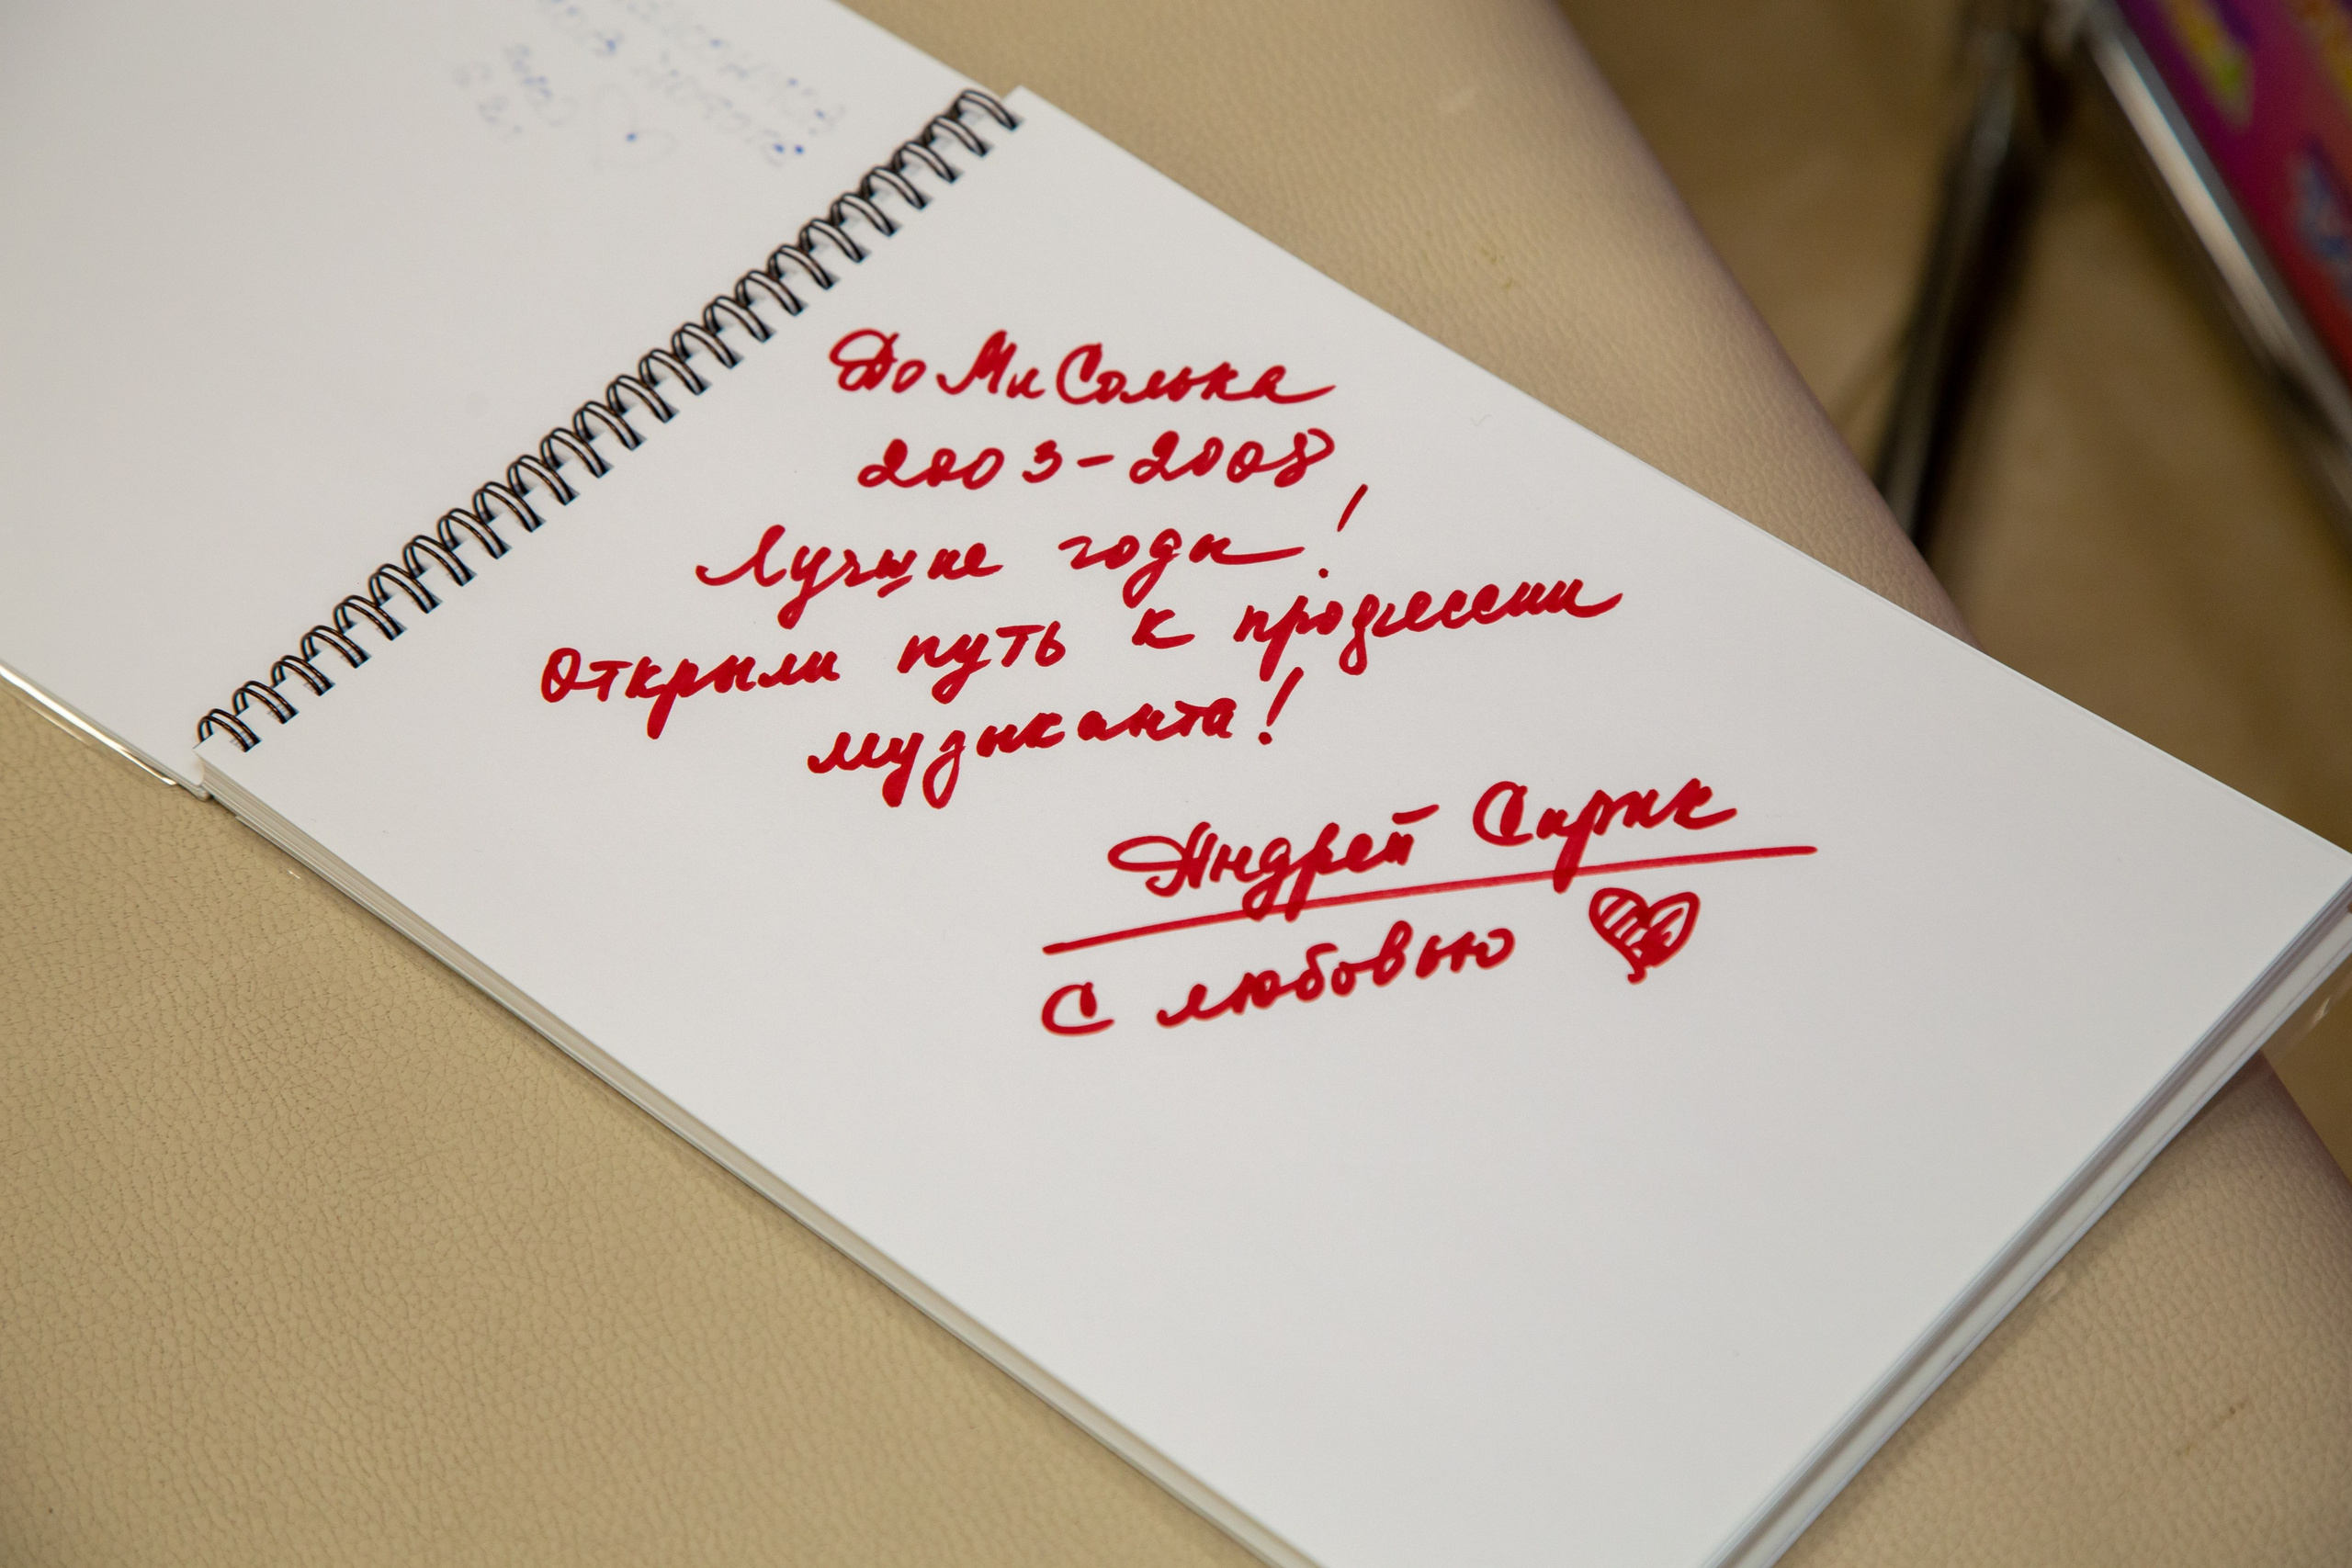 ДоМиСолька
2003-2008
Лучшие годы!
Открыли путь к профессии
музыканта!
Андрей Сирик
С любовью